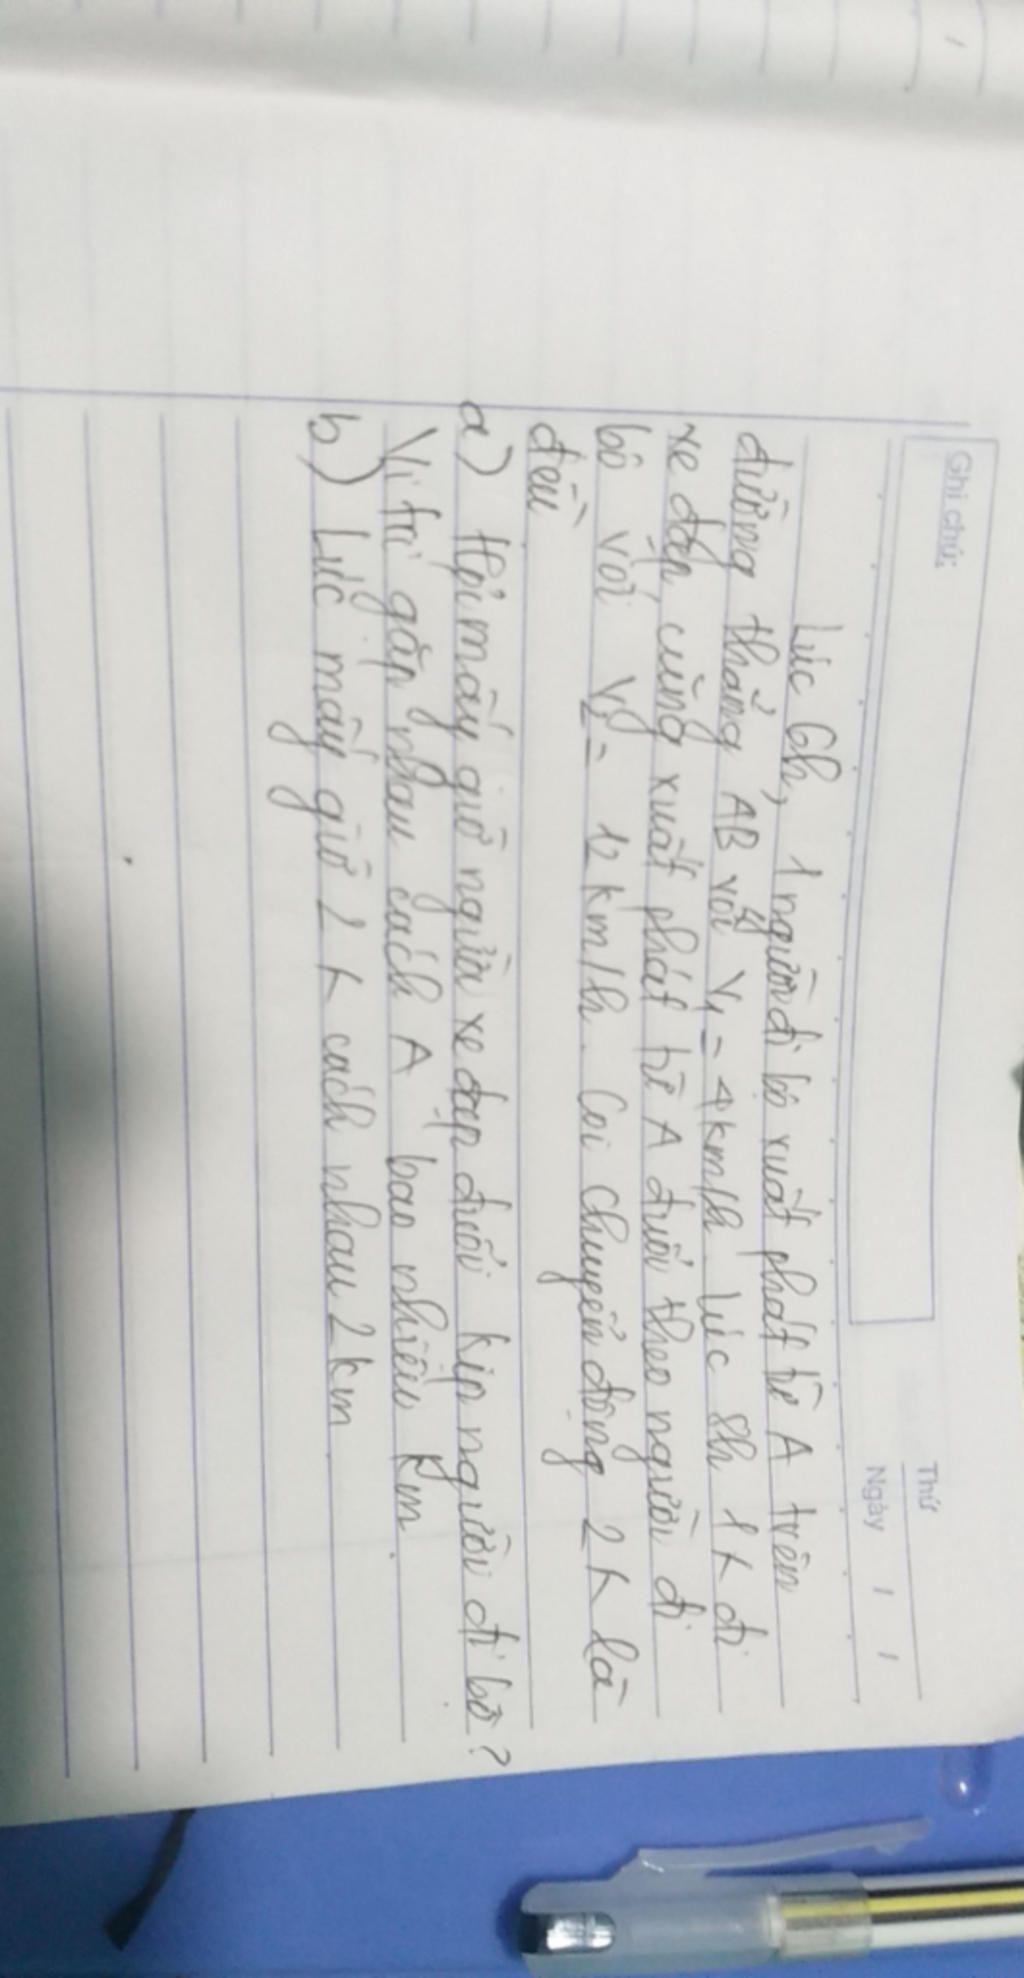 Ghi chú:
Thứ
Ngày / /
Lúc 6h, 1 người đi bộ xuất phát từ A trên
đường thẳng AB với V1 = 4km/h. Lúc 8h 1 λ đi
xe đạp cũng xuất phát từ A đuổi theo người đi
bộ với V2 = 12 km/h. Coi chuyển động 2 λ là
đều
a) Hỏi mấy giờ người xe đạp đuổi kịp người đi bộ?
Vị trí gặp nhau cách A bao nhiêu km.
b) Lúc mấy giờ 2 λ cách nhau 2 km.